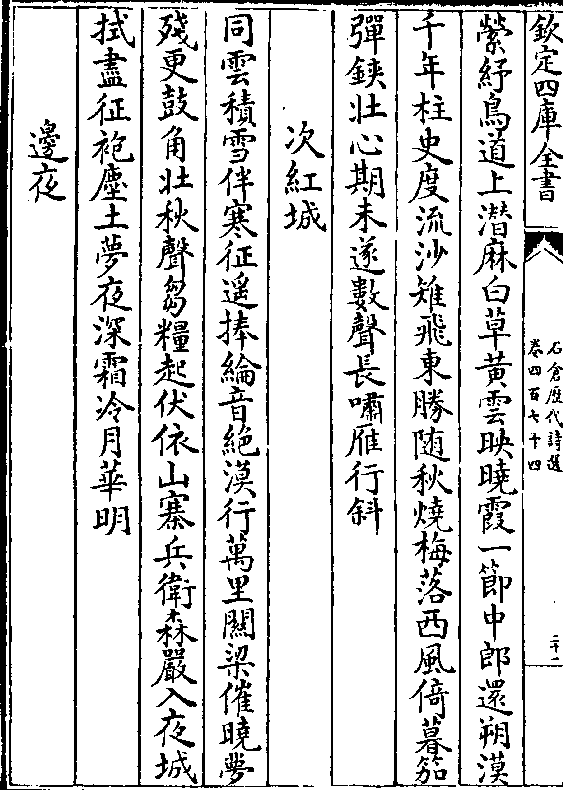 欽定四庫全書
石倉歷代詩選
卷四百七十四
二十一
縈紆鳥道上潛麻白草黃雲映曉霞一節中郎還朔漠
千年柱史度流沙雉飛東勝随秋燒梅落西風倚暮笳
彈鋏壯心期未遂數聲長嘯雁行斜
次紅城
同雲積雪伴寒征遥捧綸音絶漠行萬里關梁催曉夢
殘更鼓角壯秋聲芻糧起伏依山寨兵衛森嚴入夜城
拭盡征袍塵土夢夜深霜冷月華明
邊夜